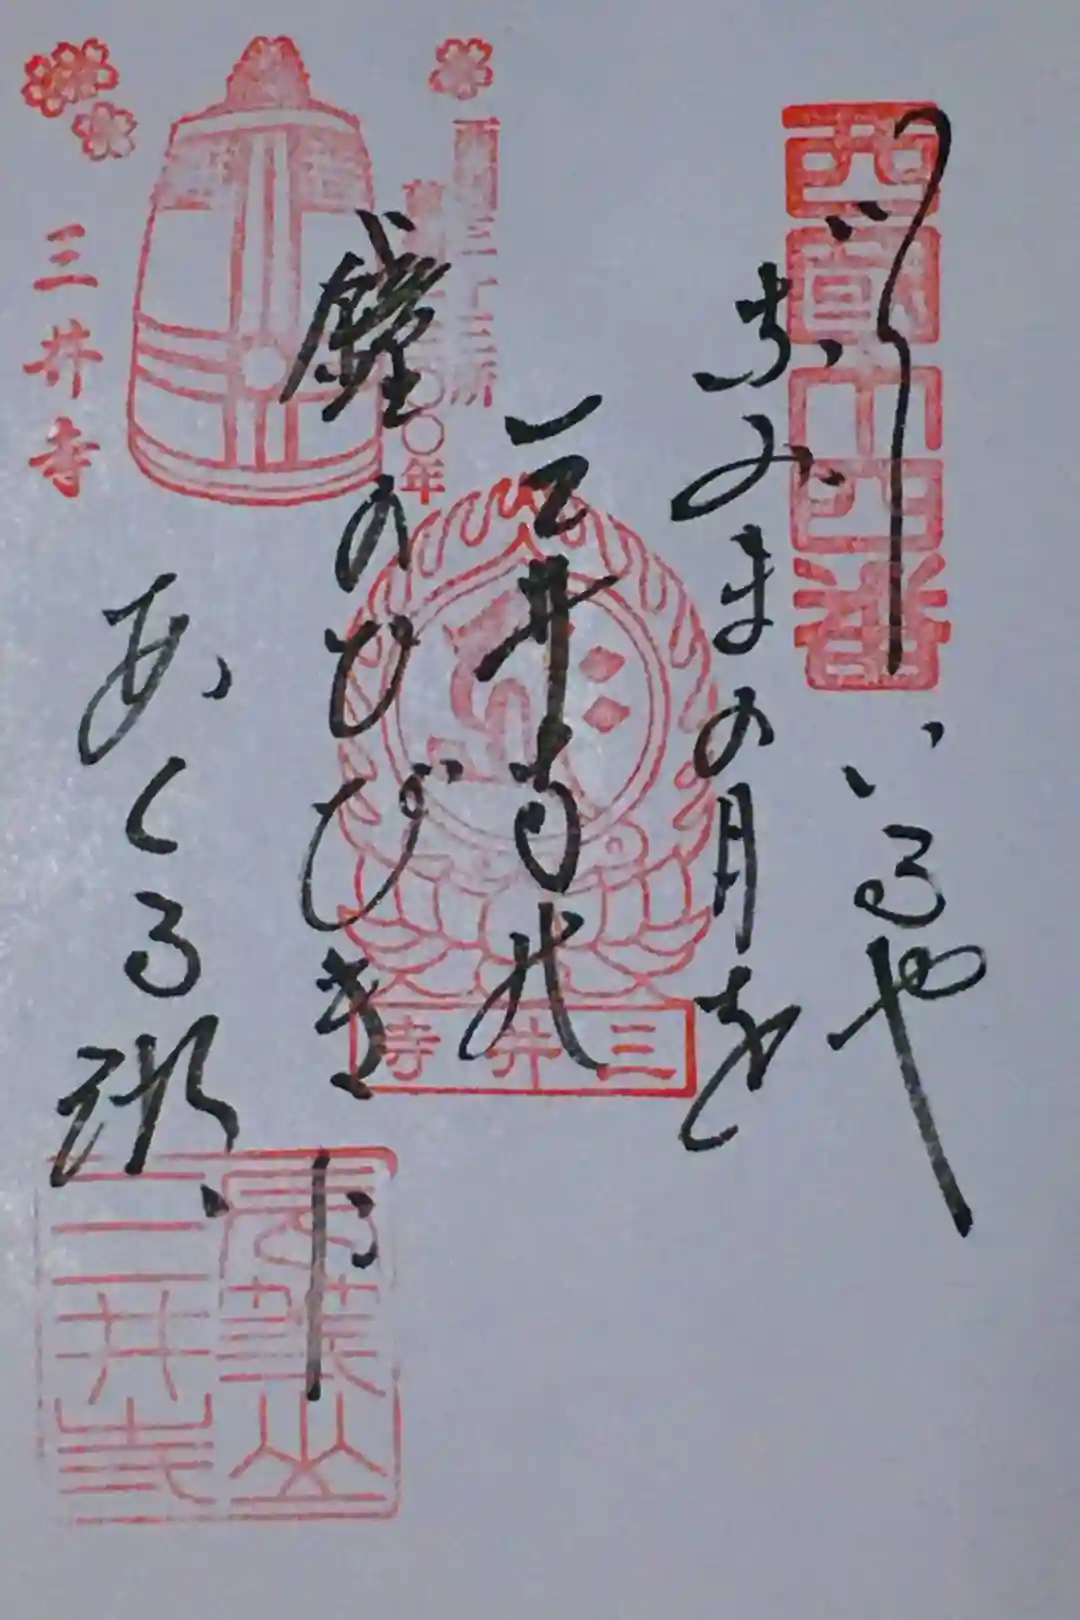 西國十四番
いでいるや
なみまの月を
三井寺の
鐘のひびきに
あくる湖
西国三十三所
草創一三〇〇年
三井寺
三井寺
長等山
三井寺